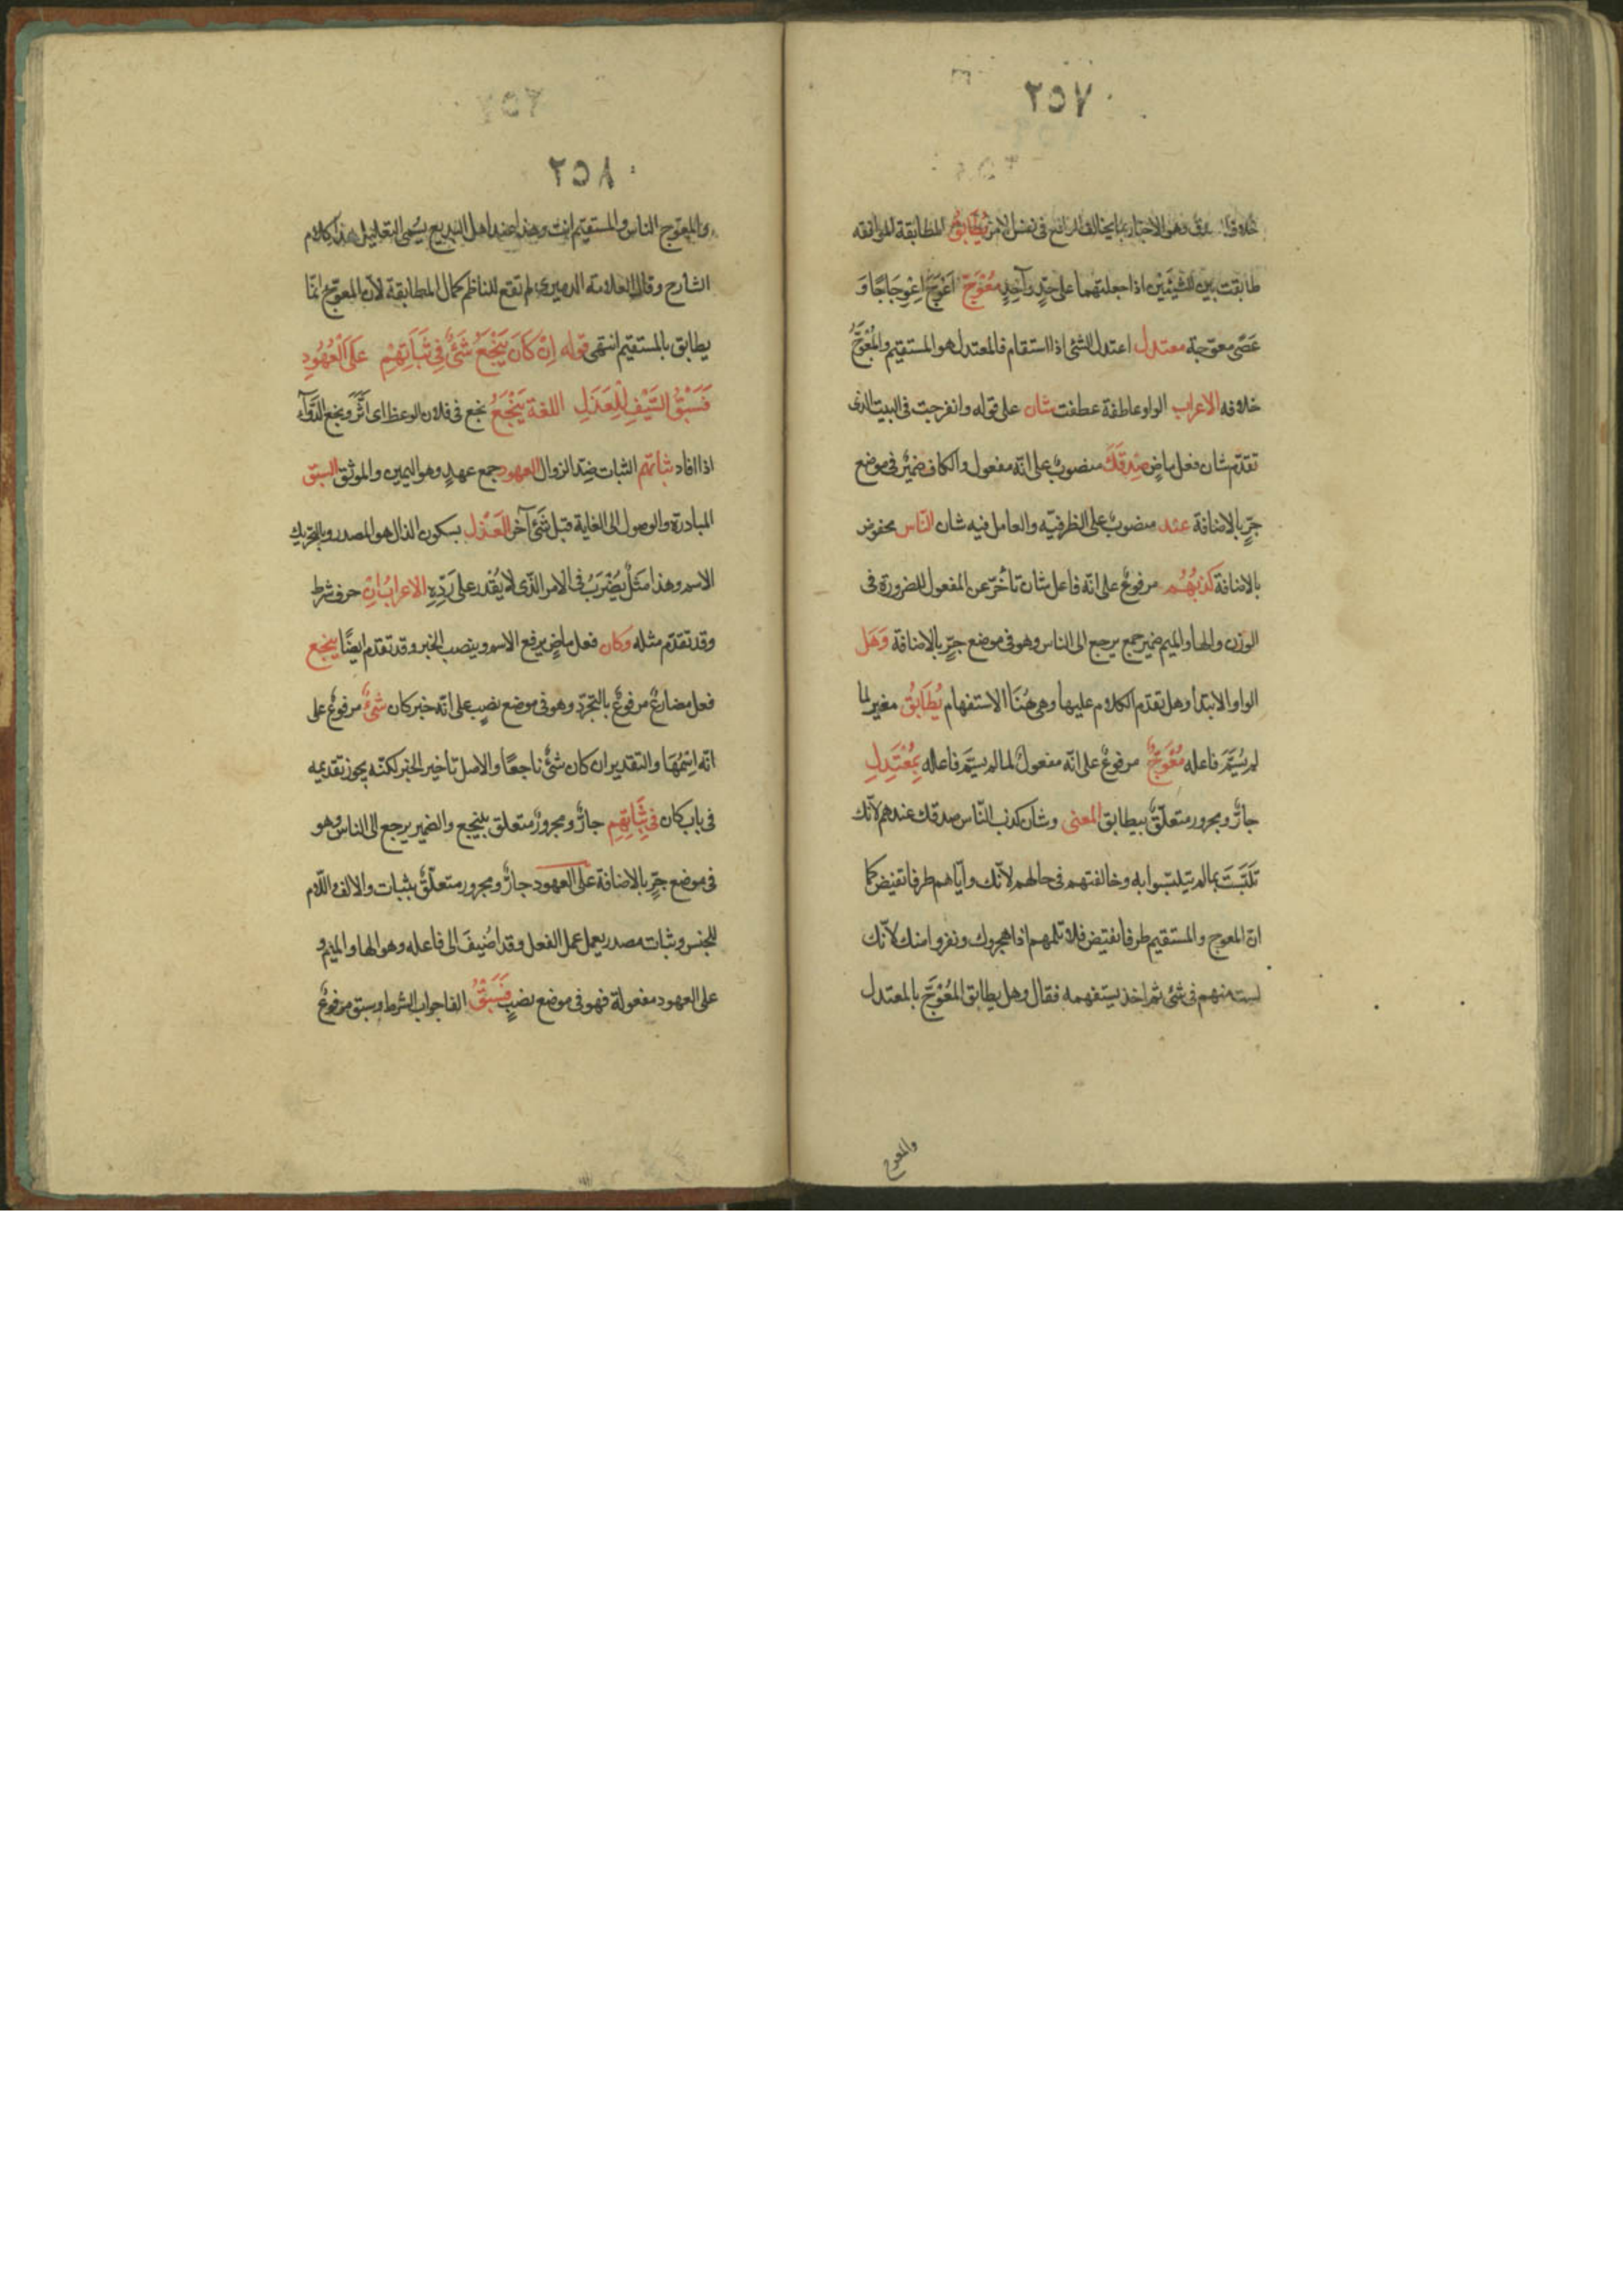 ٢٥٧
خلاف وهو الاخبار بما يخالف الواقع فى نفس الامر يُطَابَقُ المطابقة الموافقه
طابقت بين الشيئين اذا جعلتهما على حدٍّ واحدٍ مُعْوَجّ اعْوَجَّ اِعْوِجَاجًا وَ
عَصًى معوّجة معتدل اعتدل الشئ اذا استقام فالمعتدل هو المستقيم والمُعْوَجُّ
خلافه الاعراب الواو عاطفة عطفت شان على قوله وانفرجت فى البيت الذى
تقدّم شان فعل ماضٍ صِدْقَكَ منصوبٌ على انّه مفعول والكاف ضميرٌ فى موضع
جرٍّ بالاضافة عند منصوبٌ على الظرفيّه والعامل فيه شان النّاس مخفوض
بالاضافة كذبُهُم مرفوعٌ على انّه فاعل شان تأخّر عن المفعول للضرورة فى
الوزن والها والميم ضمير جمع يرجع الى الناس وهو فى موضع جرٍّ بالاضافة وَهَل
الواو الابتدا وهل تقدّم الكلام عليها وهى هُنَا الاستفهام يُطَابَقُ مغير لما
لم يُسَمَّ فاعله مُعْوَجٌّ مرفوعٌ على انّه مفعولٌ لما لم يسمَّ فاعله بِمُعْتَدِلِ
جارٌّ ومجرور متعلّقٌ بيطابق المعنى وشان كذب النّاس صدقك عندهم لانّك
تَلَبَّسْتَ بمالم يتلبّسوا به وخالفتهم فى حالهم لانّك وايّاهم طرفا نقيض كما
انّ المعوج والمستقيم طرفا نقيض فلا تلمهم اذا هجروك ونفروا منك لانّك
لست منهم فى شئ ثم اخذ يستفهمه فقال وهل يطابق المُعْوَجَّ بالمعتدل
والمعوج
٢٥٨
والمعوّج الناس والمستقيم انت وهذا عند اهل البديع يسمى التعليل هذا كلام
الشارح وقال العلامة الدميرى لم تقع للناظم كمال المطابقة لان المعوّج انّما
يطابق بالمستقيم انتهى قوله اِنْ كَانَ يَنْجَعُ شَئٌ فِى ثَبَاتِهِمْ عَلَى الْعُهُودِ
فَسَبْقُ السَّيْفِ لِلْعَذَلِ اللغة يَنْجَعُ نجع فى فلان الوعظ اى اثّرَ ونجع الدّوآء
اذا افاد ثباتهم الثبات ضِدّ الزوال العهود جمع عهدٍ وهو اليمين والموثق السبق
المبادرة والوصول الى الغاية قبل شئ آخر العَذْل بسكون الذال هو المصدر وبالتحريك
الاسم وهذا مَثَلٌ يُضْرَبُ فى الامر الّذى لا يُقْدر على رَدِّهِ الاعرابُ اِنْ حرف شرط
وقد تقدّم مثله وكان فعل ماضٍ يرفع الاسم وينصب الخبر وقد تقدم ايضًا ينجع
فعل مضارعٌ مرفوعٌ بالتجرّد وهو فى موضع نصبٍ على انّه خبر كان شئٌ مرفوعٌ على
انّه اِسْمُهَا والتقدير ان كان شئٌ ناجعًا والاصل تأخير الخبر لكنّه يجوز تقديمه
فى باب كان فِى ثَبَاتِهِم جارٌّ ومجرورٌ متعلق بينجع والضمير يرجع الى الناس وهو
فى موضع جرٍّ بالاضافة على العهود جارٌّ ومجرور متعلّقٌ بثبات والالف واللّام
للجنس وثبات مصدر يعمل عمل الفعل وقد اُضيفَ الى فاعله وهو الها والميم و
على العهود مفعولة فهو فى موضع نصبٍ فَسَبْقُ الفا جواب الشرط وسبق مرفوعٌ